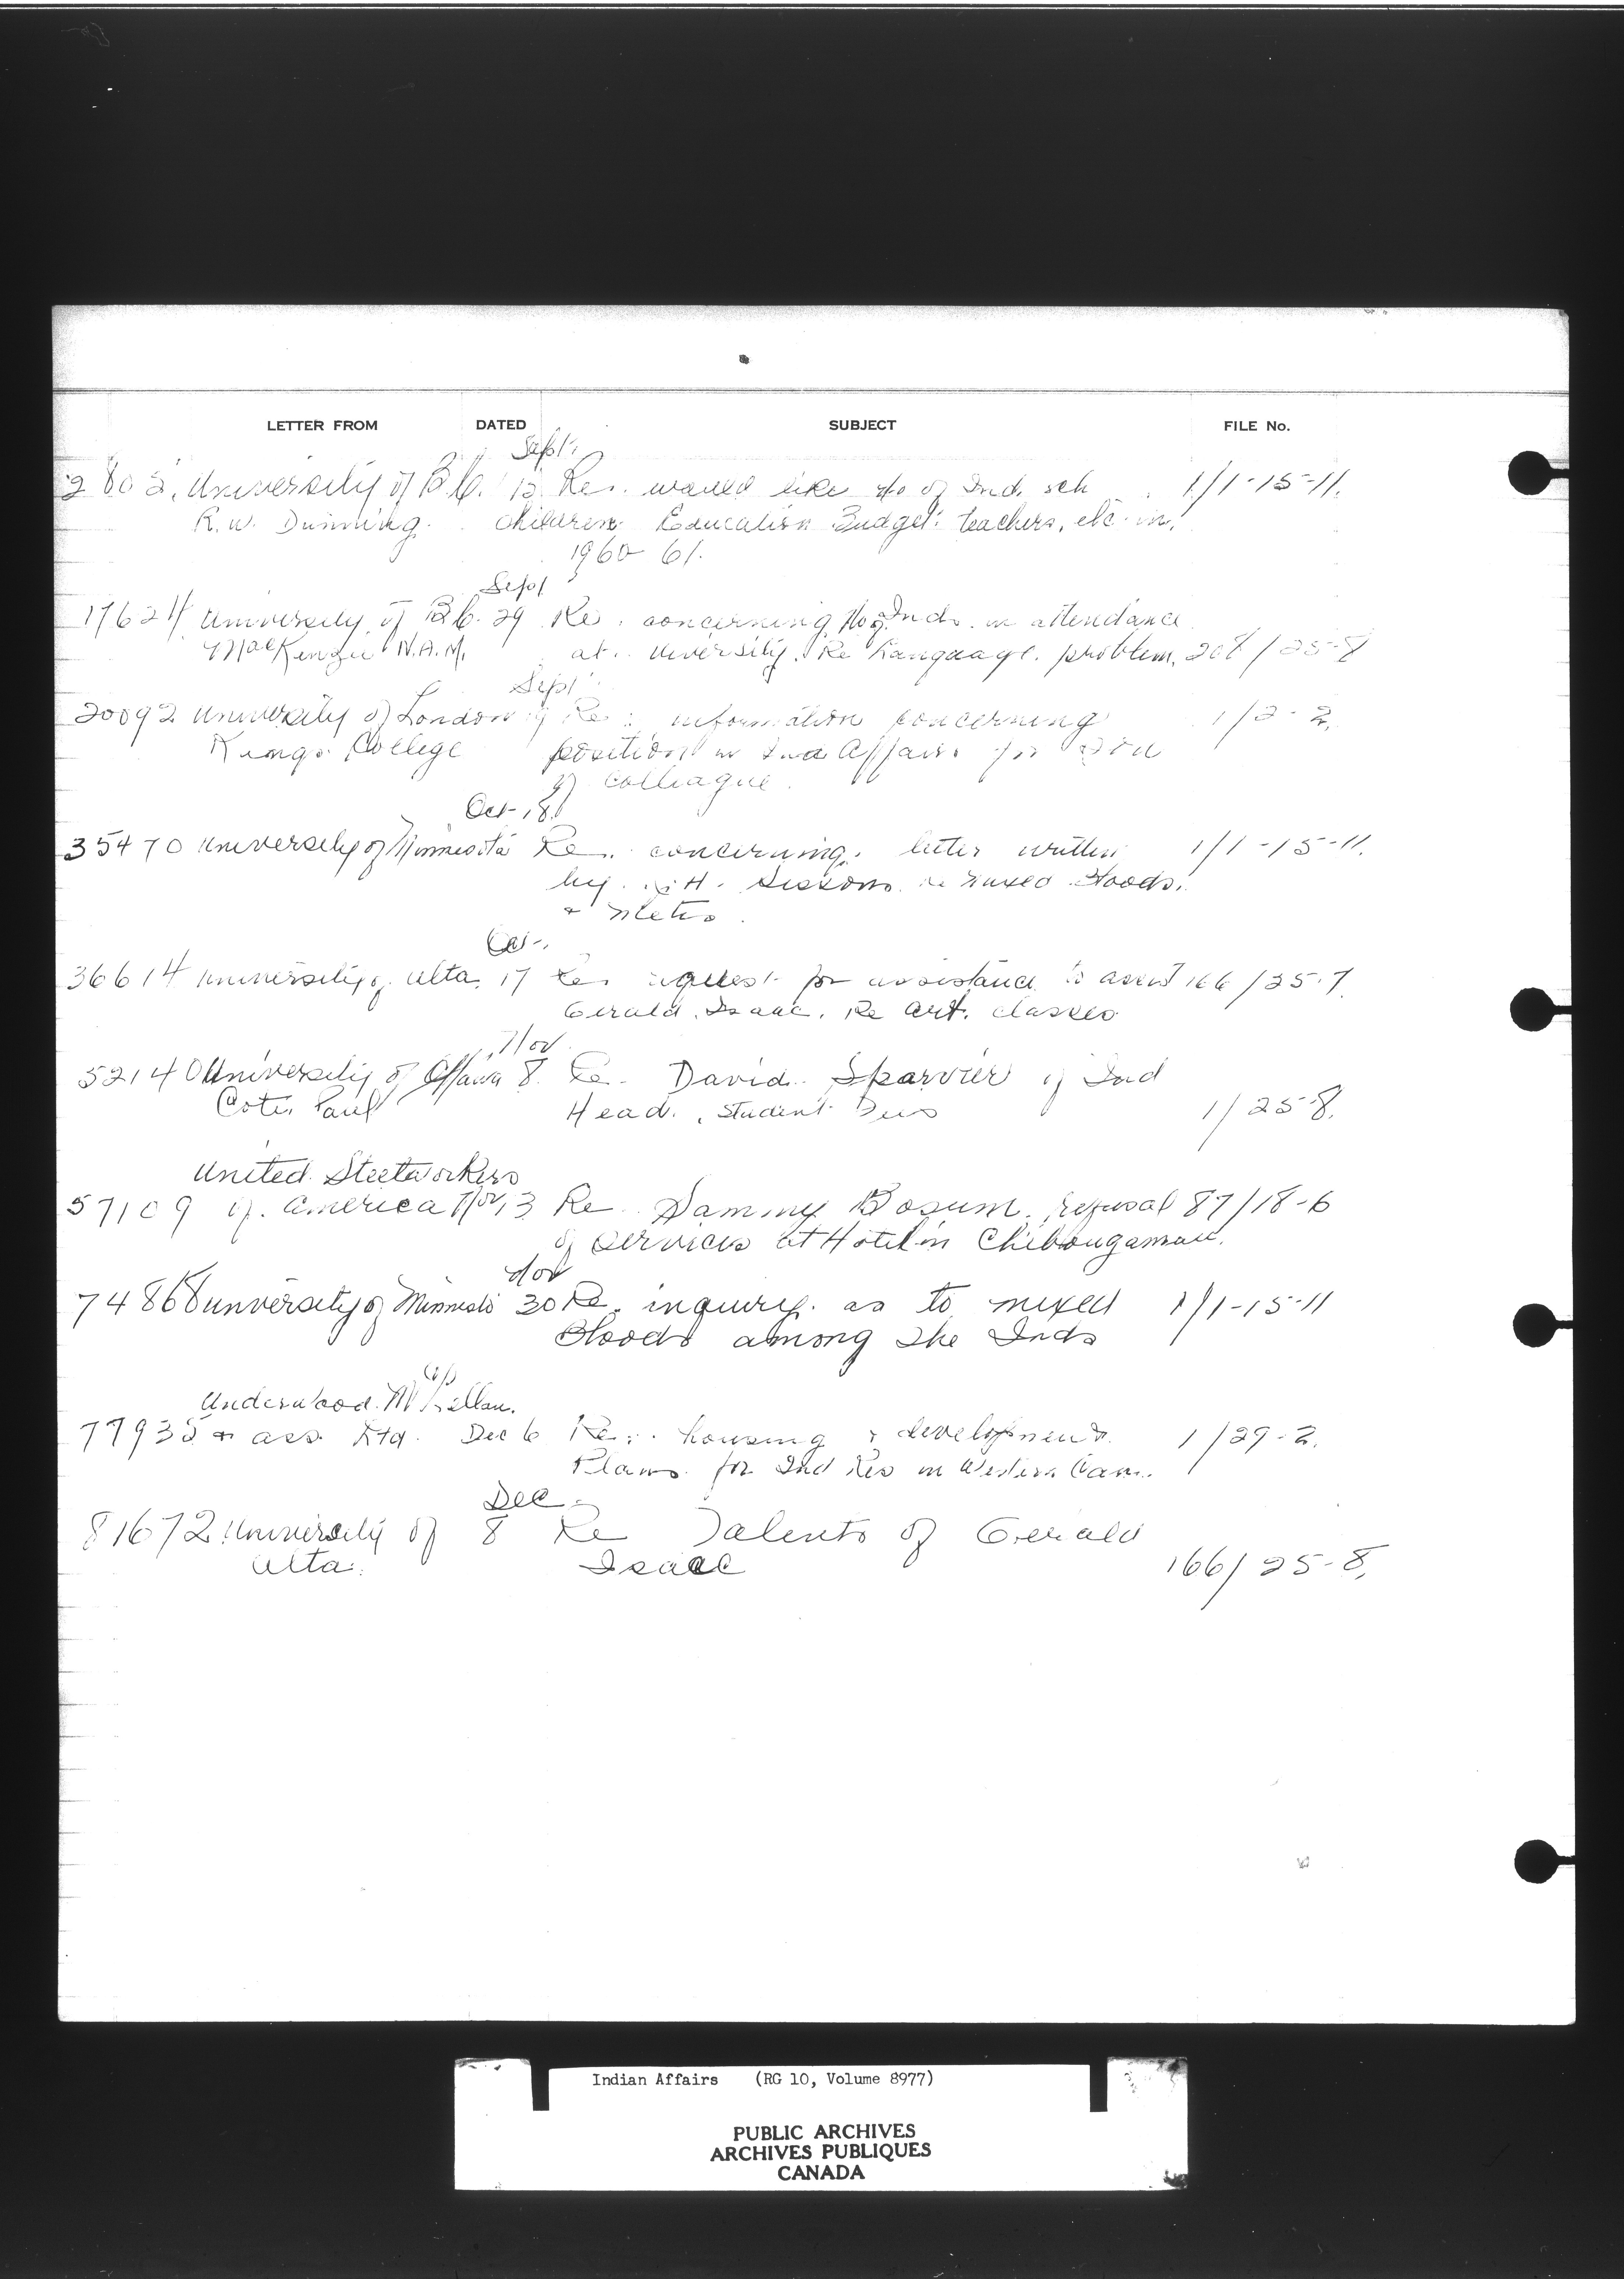 LETTER FROM DATED SUBJECT FILE No.
Sept.
2802, University of B.C. 12 Re. would like no of Ind. sch 1/1-15-11.
R.W. Dunning. children Education Budget: teachers, etc. in,
1960-61.
Sept
17624 University of B.C. 29 Re. concerning no of Inds. in attendance
MacKenzie N.A.M. at. University. Re Language. problem, 208/25-8
Sept
20092 University of London Re: information concerning 1/2-2,
Kings College position in Ind Affairs for son
of colleague.
Oct-18
35470 University of Minnesota Re. concerning. letter written 1/1-15-11.
by. H. Sissons. re mixed bloods.
& Metis.
Oct-
36614 University of Alta. 17 Re. request for assistance to assist 166/25-7.
Gerald. Isaac. Re Art. classes
Nov
52140 University of Ottawa 8. Re. David. Sparvier of Ind
Cote, Paul Head., Student Fees 1/25-8.
United Steelworkers
57109 of. America Nov, 3 Re. Sammy Bosum. refusal 87/18-6
of services at Hotel in Chibougamau.
Nov
74868 University of Minnesota 30 Re. inquiry. as to mixed 1/1-15-11
Bloods among the Inds
Underwood. McLellan.
77935 & ass. Ltd. Dec 6 Re.. housing & development 1/29-2.
Plans for Ind Res in Western Can.
Dec.
81672 University of 8 Re Talents of Gerald
Alta. Isaac 166/25-8,
Indian Affairs (RG 10, Volume 8977)
PUBLIC ARCHIVES
ARCHIVES PUBLIQUES
CANADA